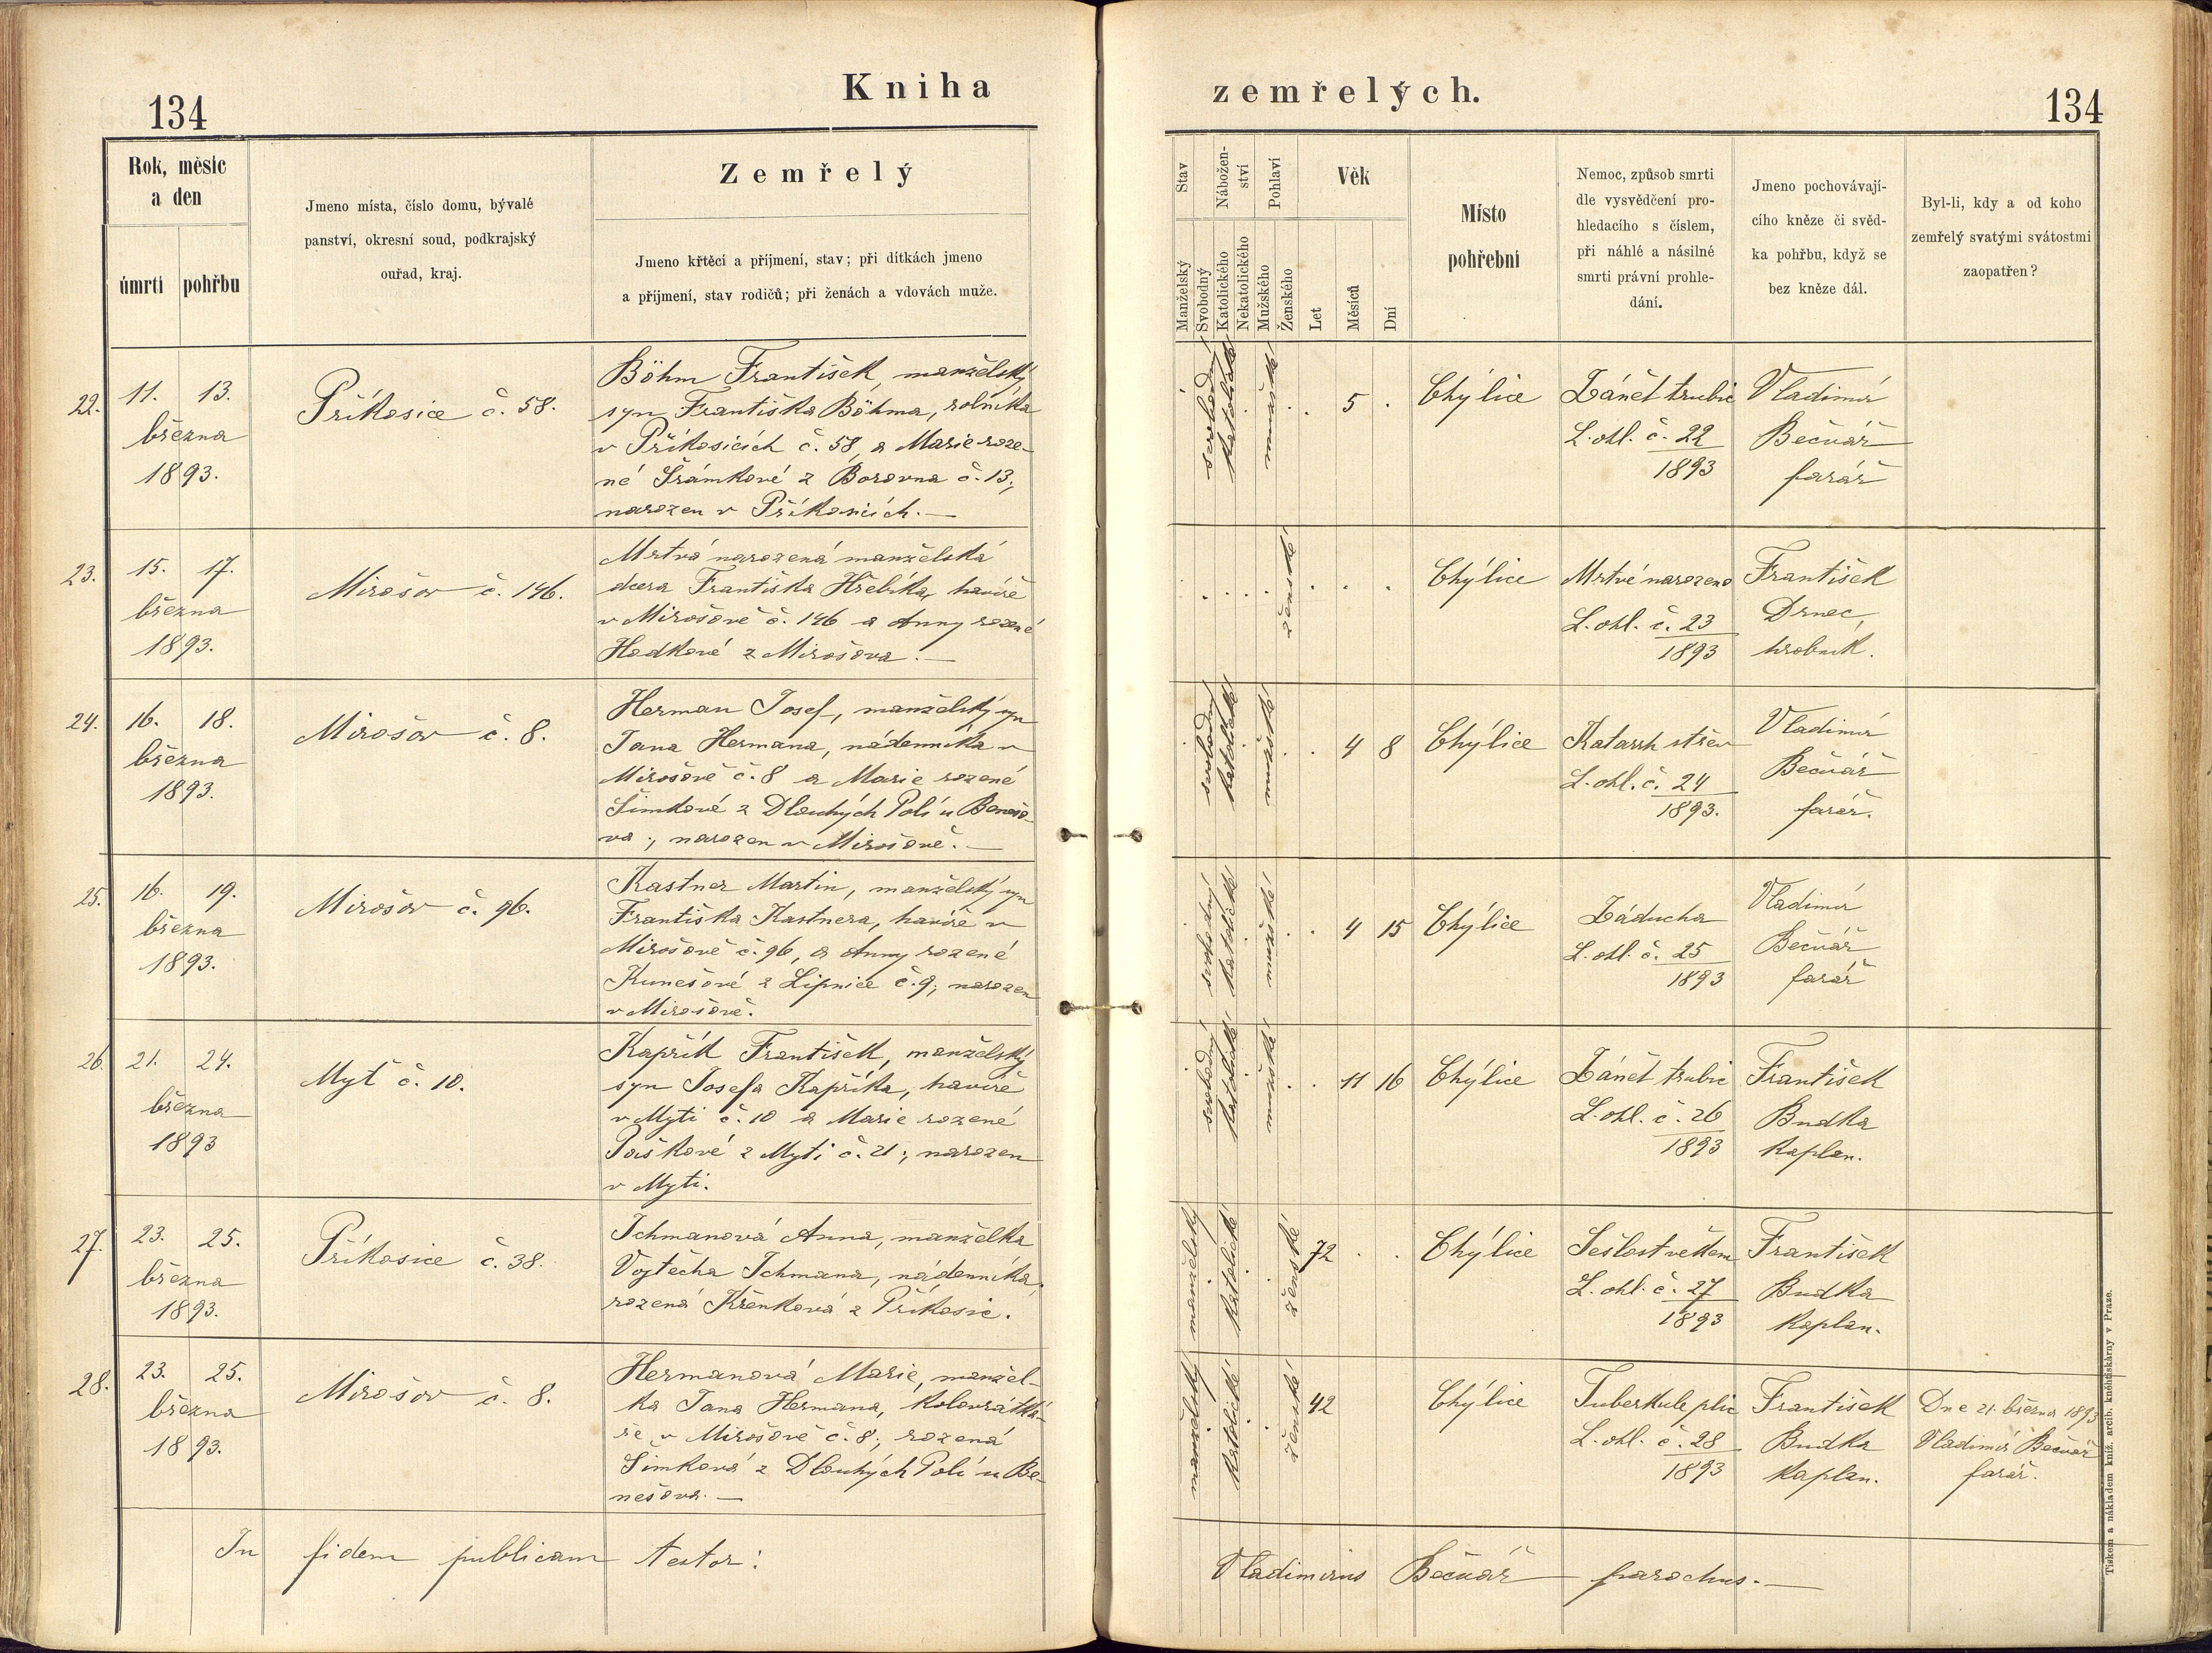 Kniha
zemřelých.
134
134
Rok, měsíc
a den
úmrtí
pohřbu
Jmeno místa, číslo domu, bývalé
panství, okresní soud, podkrajský
ouřad, kraj.
Zemřelý
Jmeno křtěcí a příjmení, stav; při dítkách jmeno
a příjmení, stav rodičů; při ženách a vdovách muže.
Stav
Manželský
Svobodný
Nábožen-
ství
Katolického
Nekatolického
Pohlaví
Mužského
Ženského
Věk
Let
Měsíců
Dní
Místo
pohřební
Nemoc, způsob smrti
dle vysvědčení pro-
hledacího s číslem,
při náhlé a násilné
smrti právní prohle-
dání.
Jmeno pochovávají-
cího kněze či svěd-
ka pohřbu, když se
bez kněze dál.
Byl-li, kdy a od koho
zemřelý svatými svátostmi
zaopatřen?
22.
11. 13.
března
1893.
Příkosice č. 58.
Böhm František, manželský
syn Františka Böhma, rolníka
v Příkosicích č. 58, a Marie roze-
né Šrámkové z Borovna č. 13;
narozen v Příkosicích. —
svobodný
katolické
mužské
5
Chýlice
Zánět trubic
L. ohl. č. 22
1893
Vladimír
Bečvář
farář
23.
15. 17.
března
1893.
Mirošov č. 146.
Mrtvá narozená manželská
dcera Františka Hřebíka, havíře
v Mirošově č. 146 a Anny rozené
Hodkové z Mirošova. —
ženské
Chýlice
Mrtvě narozeno
L. ohl. č. 23
1893
František
Drnec,
hrobník.
24.
16. 18.
března
1893.
Mirošov č. 8.
Herman Josef, manželský syn
Jana Hermana, nádenníka v
Mirošově č. 8 a Marie rozené
Šimkové z Dlouhých Polí u Benešo-
va; narozen v Mirošově. —
svobodný
katolické
mužské
4 8
Chýlice
Katarrh střev
L. ohl. č. 24
1893.
Vladimír
Bečvář
farář.
25.
16. 19.
března
1893.
Mirošov č. 96.
Kastner Martin, manželský syn
Františka Kastnera, havíře v
Mirošově č. 96, a Anny rozené
Kunešové z Lipnice č. 9; narozen
v Mirošově.
svobodný
katolické
mužské
4 15
Chýlice
Záducha
L. ohl. č. 25
1893
Vladimír
Bečvář
farář
26.
21. 24.
března
1893
Myť č. 10.
Kapřík František, manželský
syn Josefa Kapříka, havíře
v Myti č. 10 a Marie rozené
Poiškové z Myti č. 21; narozen
v Myti.
svobodný
katolické
mužské
11 16
Chýlice
Zánět trubic
L. ohl. č. 26
1893
František
Budka
kaplan.
27.
23. 25.
března
1893.
Příkosice č. 38.
Ichmanová Anna, manželka
Vojtěcha Ichmana, nádenníka,
rozená Křenková z Příkosic.
manželský
katolické
ženské
72
Chýlice
Sešlost věkem
L. ohl. č. 27
1893
František
Budka
kaplan.
28.
23. 25.
března
1893.
Mirošov č. 8.
Hermanová Marie, manžel-
ka Jana Hermana, kolovrátká-
ře v Mirošově č. 8; rozená
Šimková z Dlouhých Polí u Be-
nešova. —
manželský
katolické
ženské
42
Chýlice
Tuberkule plic
L. ohl. č. 28
1893
František
Budka
kaplan.
Dne 21. března 1893
Vladimír Bečvář
farář.
In fidem publicam testor:
Vladimirus Bečvář parochus. —
Tiskem a nákladem kníž. arcib. kněhtiskárny v Praze.